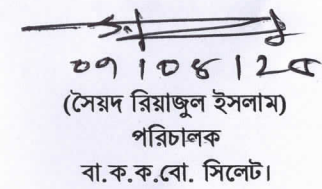 ০৭/০৮/২৫
(সৈয়দ রিয়াজুল ইসলাম)
পরিচালক
বা.ক.ক.বো. সিলেট।